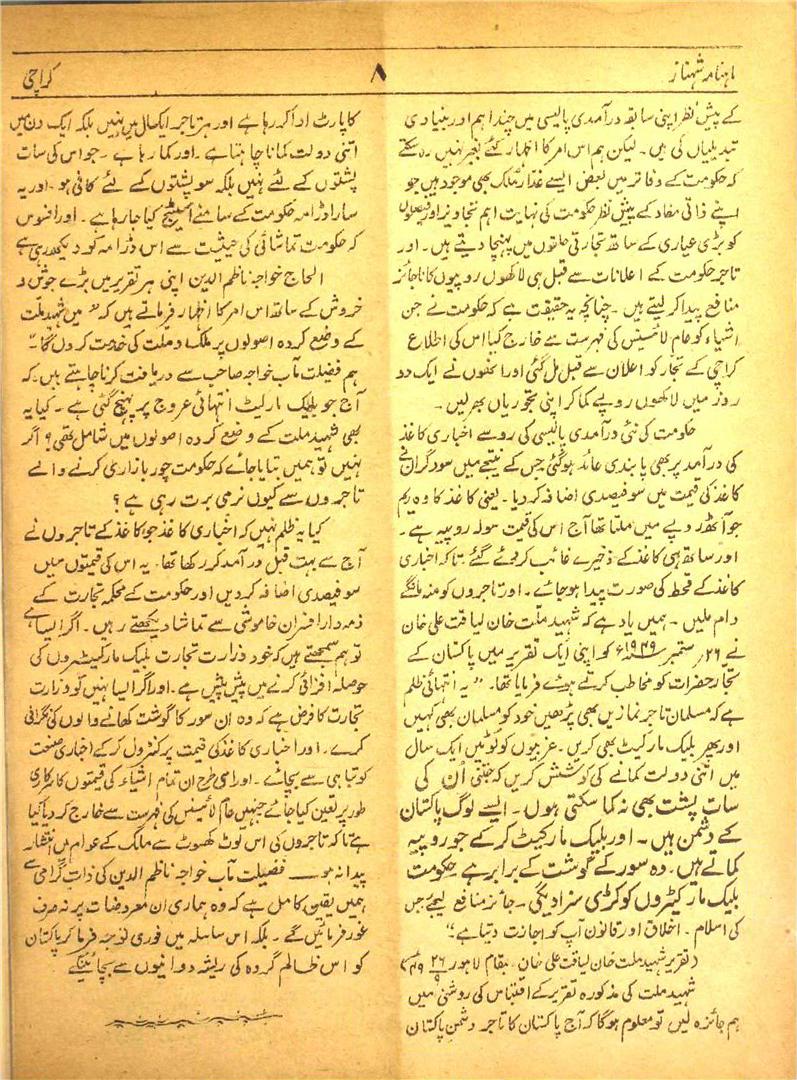 ماہنامہ شہناز
۸
کراچی
کے پیش نظر اپنی سابقہ درآمدی پالیسی میں چند اہم اور بنیادی
تبدیلیاں کی ہیں۔ لیکن ہم اس امر کا اظہار کئے بغیر نہیں رہ سکتے
کہ حکومت کے دفاتر میں بعض ایسے غدار ملک بھی موجود ہیں جو
اپنے ذاتی مفاد کے پیش نظر حکومت کی نہایت اہم تجاویز اور فیصلوں
کو بڑی عیاری کے ساتھ تجارتی حلقوں میں پہنچا دیتے ہیں۔ اور
تاجر حکومت کے اعلانات سے قبل ہی لاکھوں روپیوں کا ناجائز
منافع پیدا کر لیتے ہیں۔ چنانچہ یہ حقیقت ہے کہ حکومت نے جن
اشیاء کو عام لائسنس کی فہرست سے خارج کیا اس کی اطلاع
کراچی کے تجار کو اعلان سے قبل مل گئی اور انھوں نے ایک دو
روز میں لاکھوں روپے کما کر اپنی تجوریاں بھر لیں۔
حکومت کی نئی درآمدی پالیسی کی رو سے اخباری کاغذ
کی درآمد پر بھی پابندی عائد ہو گئی جس کے نتیجے میں سوداگران نے
کاغذ کی قیمت میں سو فیصدی اضافہ کر دیا۔ یعنی کاغذ کا وہ ریم
جو آٹھ روپے میں ملتا تھا آج اس کی قیمت سولہ روپیہ ہے۔
اور ساتھ ہی کاغذ کے ذخیرے غائب کر دیئے گئے۔ تاکہ اخباری
کاغذ کے قحط کی صورت پیدا ہو جائے۔ اور تاجروں کو منہ مانگے
دام ملیں۔ ہمیں یاد ہے کہ شہید ملت خان لیاقت علی خان
نے ۲۶؍ ستمبر ۱۹۴۹ء کو اپنی ایک تقریر میں پاکستان کے
تجار حضرات کو مخاطب کرتے ہوئے فرمایا تھا۔ "یہ انتہائی ظلم
ہے کہ مسلمان تاجر نمازیں بھی پڑھیں خود کو مسلمان بھی کہیں
اور پھر بلیک مارکیٹ بھی کریں۔ غریبوں کو لوٹیں ایک سال
میں اتنی دولت کمانے کی کوشش کریں کہ جتنی اُن کی
سات پشت بھی نہ کما سکتی ہوں۔ ایسے لوگ پاکستان
کے دشمن ہیں۔ اور بلیک مارکیٹ کر کے جو روپیہ
کماتے ہیں۔ وہ سور کے گوشت کے برابر ہے حکومت
بلیک مارکیٹروں کو کڑی سزا دیگی۔ جائز منافع لیجئے جس
کی اسلام۔ اخلاق اور قانون آپ کو اجازت دیتا ہے"
(تقریر شہید ملت خان لیاقت علی خان۔ بمقام لاہور ۲۶/۹ ۴۹ء)
شہید ملت کی مذکورہ تقریر کے اقتباس کی روشنی میں
ہم جائزہ لیں تو معلوم ہوگا کہ آج پاکستان کا تاجر دشمن پاکستان
کا پارٹ ادا کر رہا ہے اور ہر تاجر ایک سال میں نہیں بلکہ ایک دن میں
اتنی دولت کمانا چاہتا ہے۔ اور کما رہا ہے۔ جو اس کی سات
پشتوں کے لئے نہیں بلکہ سو پشتوں کے لئے کافی ہو۔ اور یہ
سارا ڈرامہ حکومت کے سامنے اسٹیج کیا جا رہا ہے۔ اور افسوس
کہ حکومت تماشائی کی حیثیت سے اس ڈرامہ کو دیکھ رہی ہے
الحاج خواجہ ناظم الدین اپنی ہر تقریر میں بڑے جوش و
خروش کے ساتھ اس امر کا اظہار فرماتے ہیں کہ "میں شہید ملت
کے وضع کردہ اصولوں پر ملک و ملت کی خدمت کروں گا"۔
ہم فضیلت مآب خواجہ صاحب سے دریافت کرنا چاہتے ہیں کہ
آج جو بلیک مارکیٹ انتہائی عروج پر پہنچ گئی ہے۔ کیا یہ
بھی شہید ملت کے وضع کردہ اصولوں میں شامل تھی؟ اگر
نہیں تو ہمیں بتایا جائے کہ حکومت چور بازاری کرنے والے
تاجروں سے کیوں نرمی برت رہی ہے؟
کیا یہ ظلم نہیں کہ اخباری کاغذ جو کاغذ کے تاجروں نے
آج سے بہت قبل درآمد کر رکھا تھا۔ یہ اس کی قیمتوں میں
سو فیصدی اضافہ کر دیں اور حکومت کے محکمہ تجارت کے
ذمہ دار افسران خاموشی سے تماشا دیکھتے رہیں۔ اگر ایسا ہے
تو ہم سمجھتے ہیں کہ خود وزارت تجارت بلیک مارکیٹروں کی
حوصلہ افزائی کرنے میں پیش پیش ہے۔ اور اگر ایسا نہیں تو وزارت
تجارت کا فرض ہے کہ وہ ان سور کا گوشت کھانے والوں کی نگرانی
کرے۔ اور اخباری کاغذ کی قیمت پر کنٹرول کر کے اخباری صنعت
کو تباہی سے بچائے۔ اور اسی طرح ان تمام اشیاء کی قیمتوں کا سرکاری
طور پر تعین کیا جائے جنہیں عام لائسنس کی فہرست سے خارج کر دیا گیا
ہے تاکہ تاجروں کی اس لوٹ کھسوٹ سے ملک کے عوام میں انتشار
پیدا نہ ہو — فضیلت مآب خواجہ ناظم الدین کی ذات گرامی سے
ہمیں یقین کامل ہے کہ وہ ہماری ان معروضات پر نہ صرف
غور فرمائیں گے۔ بلکہ اس سلسلہ میں فوری توجہ فرما کر پاکستان
کو اس ظالم گروہ کی ریشہ دوانیوں سے بچائینگے